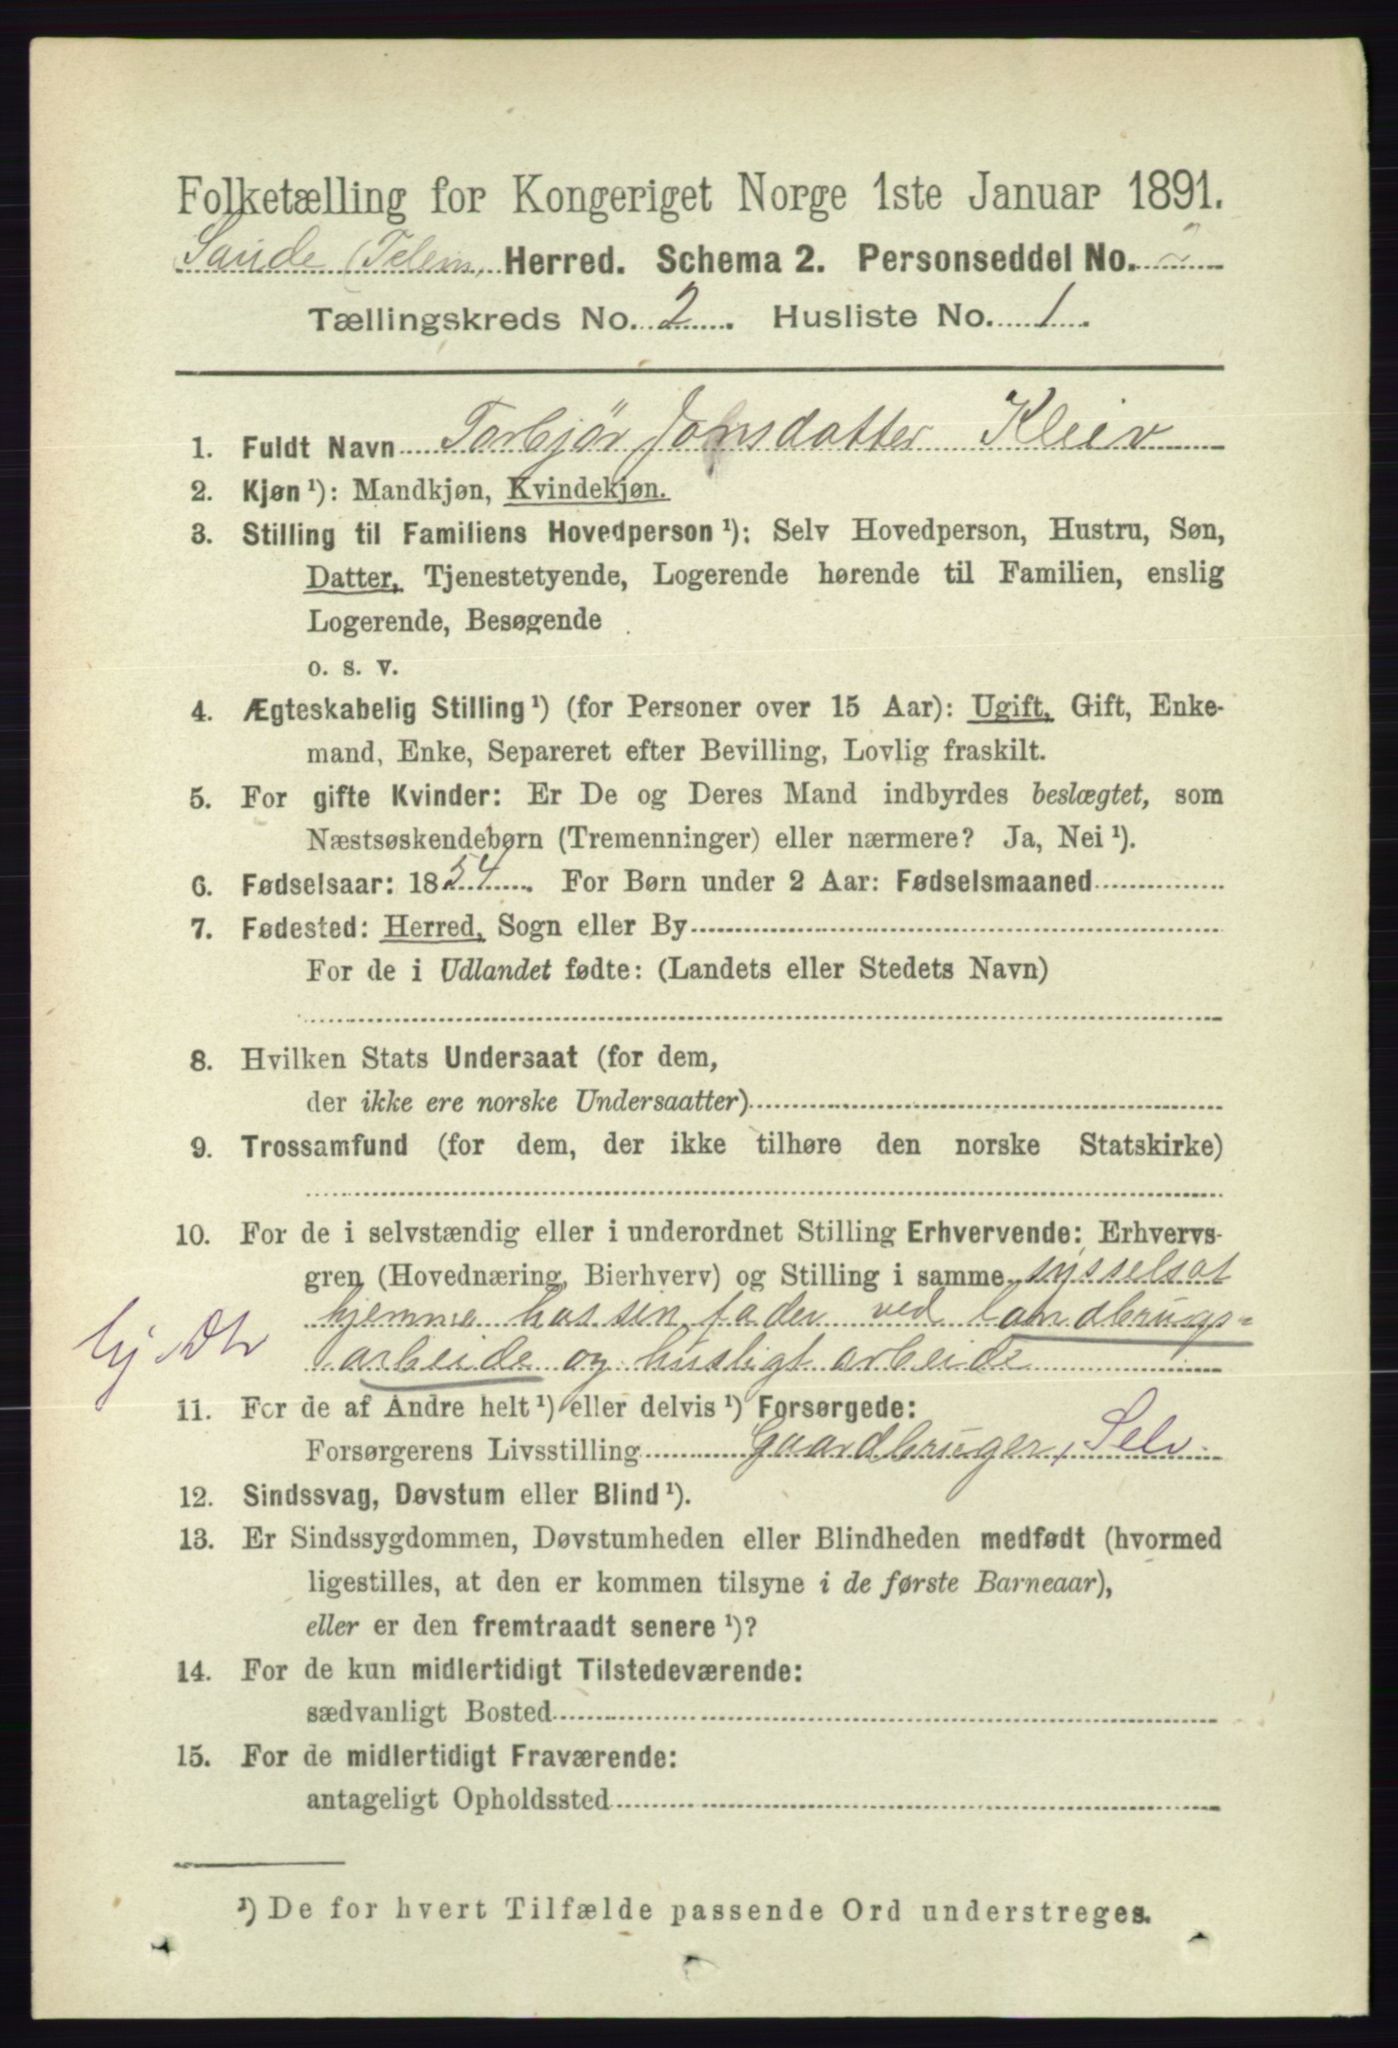 Folketælling for Kongeriget Norge 1ste Januar 1891.
Saude (Telem. Herred. Schema 2. Personseddel No.
Tællingskreds No. 2. Husliste No. 1.
1. Fuldt Navn Torbjør Jonsdatter Kleiv
2. Kjøn ¹): Mandkjøn, Kvindekjøn.
3. Stilling til Familiens Hovedperson ¹): Selv Hovedperson, Hustru, Søn,
Datter, Tjenestetyende, Logerende hørende til Familien, enslig
Logerende, Besøgende
o. s. v.
4. Ægteskabelig Stilling ¹) (for Personer over 15 Aar): Ugift, Gift, Enke-
mand, Enke, Separeret efter Bevilling, Lovlig fraskilt.
5. For gifte Kvinder: Er De og Deres Mand indbyrdes beslægtet, som
Næstsøskendebørn (Tremenninger) eller nærmere? Ja, Nei ¹).
6. Fødselsaar: 1854. For Børn under 2 Aar: Fødselsmaaned
7. Fødested: Herred, Sogn eller By
For de i Udlandet fødte: (Landets eller Stedets Navn)
8. Hvilken Stats Undersaat (for dem,
der ikke ere norske Undersaatter)
9. Trossamfund (for dem, der ikke tilhøre den norske Statskirke)
10. For de i selvstændig eller i underordnet Stilling Erhvervende: Erhvervs-
gren (Hovednæring, Bierhverv) og Stilling i samme sysselsat
hjemme hos sin fader ved landbrugs-
arbeide og husligt arbeide
11. For de af Andre helt ¹) eller delvis ¹) Forsørgede:
Forsørgerens Livsstilling Gaardbruger, Selv.
12. Sindssvag, Døvstum eller Blind ¹).
13. Er Sindssygdommen, Døvstumheden eller Blindheden medfødt (hvormed
ligestilles, at den er kommen tilsyne i de første Barneaar),
eller er den fremtraadt senere ¹)?
14. For de kun midlertidigt Tilstedeværende:
sædvanligt Bosted
15. For de midlertidigt Fraværende:
antageligt Opholdssted
¹) De for hvert Tilfælde passende Ord understreges.